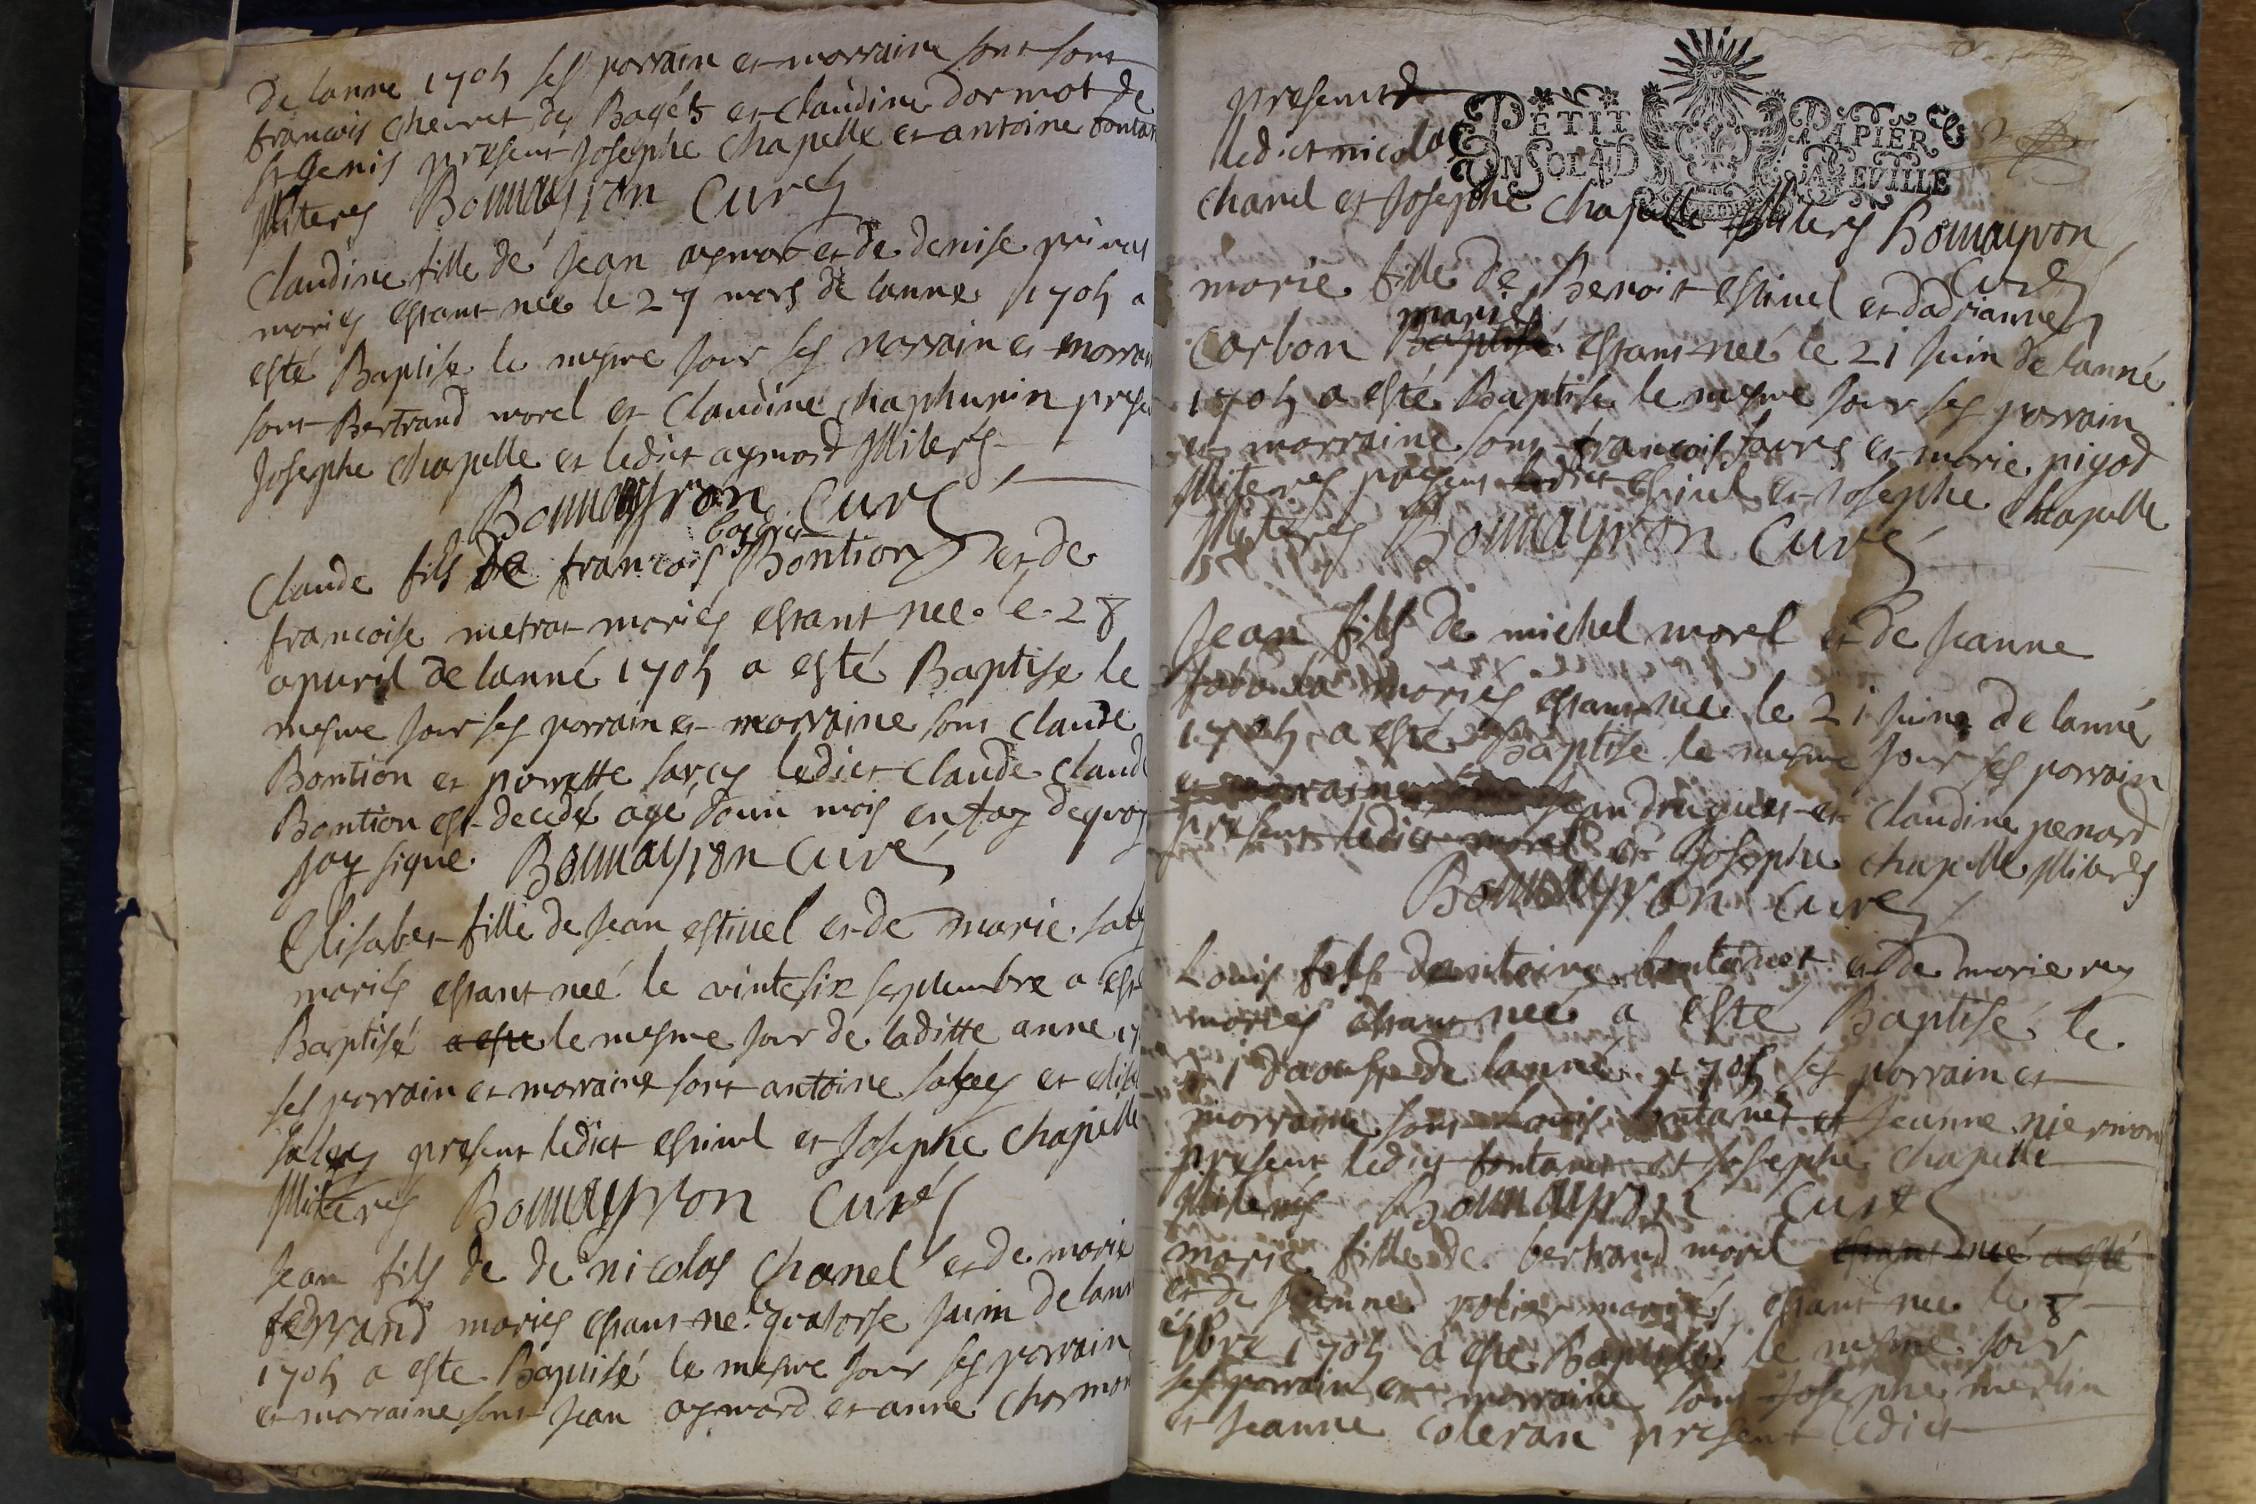 de lanne 1705 ses parrain et marraine sont sont
francois chevret des Bagés et claudine dormot de
st Genis present Josephe chapelle et antoine fontan
illiterés Bonnayron Curé
Claudine fille de Jean aymar et de denise primas
mariés estant née le 27 mars de lanne 1705 a
esté Baptise le mesme jour ses parrain et marrai
sont Bertrand morel et Claudine chaphurin prese
Josephe chapelle et ledict aymard illiterés
Bonnayron Curé
Claude fils de francois Bontion et de
francoise metrat mariés estant nee le 28
apuril de lanné 1705 a esté Baptise le
mesme jour ses parrain et marraine sont claude
Bontion et pierrette sarcy ledict claude claude
Bontion est decedé agé dun mois en foy dequoy
jay signé Bonnayron Curé
Elisabet fille de Jean estiuel et de marie
mariés estant neé le vintesix septembre a esté
Baptisé a esté le mesme jour de laditte anne 17
ses parrain et marraine sont antoine salcy et elisa
present ledict estiuel et Josephe chapelle
illiterés Bonnayron Curé
Jean fils de de nicolas chanel et de marie
ferrand mariés estant ne quatorse juin de lann
1705 a este Baptisé le mesme jour ses parrain
et marraine sont Jean aymard et anne charmon
present
PETIT PAPIER
UN SOL 4 D LA FEVILLE
ledict nicolas
chanel et Josephe chapelle illiterés Bonnayron
Curé
marie fille de Benoist estiuel et dadrianne
mariés
Carbon Baptisé estant neé le 21 juin de lanné
1705 a esté Baptise le mesme jour ses parrain
et marraine sont francois faure et marie pigod
illiterés present ledict estiuel et Josephe chapelle
illiterés Bonnayron Curé
Jean fils de michel morel et de Jeanne
mariés estant nee le 21 juin de lanné
1705 a esté Baptise le mesme jour ses parrain
et marraine Jean druguet et Claudine penard
present ledict morel et Josephe chapelle illiterés
Bonnayron Curé
Louis fils dantoine fontanet et de marie rey
mariés estant neé a esté Baptisé le
daoust de lanné 1705 ses parrain et
marraine sont Louis fontanet et Jeanne niermon
present ledict fontanet et Josephe chapelle
illiterés Bonnayron Curé
marie fille de bertrand morel estant neé a esté
et de Jeanne polier mariés estant nee le 8
1705 a esté Baptisé le mesme jour
ses parrain et marraine sont Josephe merlin
et Jeanne coleran present ledict